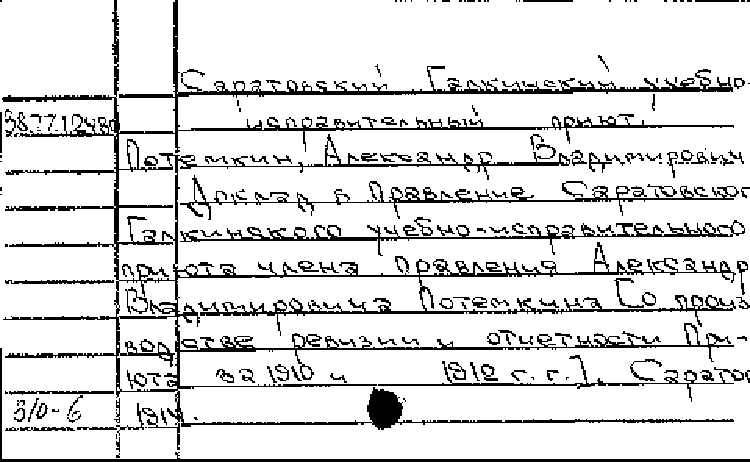 Саратовский Галкинский учебно-
исправительный приют.
Потемкин, Александр Владимирович
Доклад в Правление Саратовског
Галкинского учебно-исправительного
приюта члена Правления Александр
Владимировича Потемкина [о произ
водстве ревизии и отчетности При-
юта за 1910 и 1912 г.г.]. Саратов
310-6 1914.